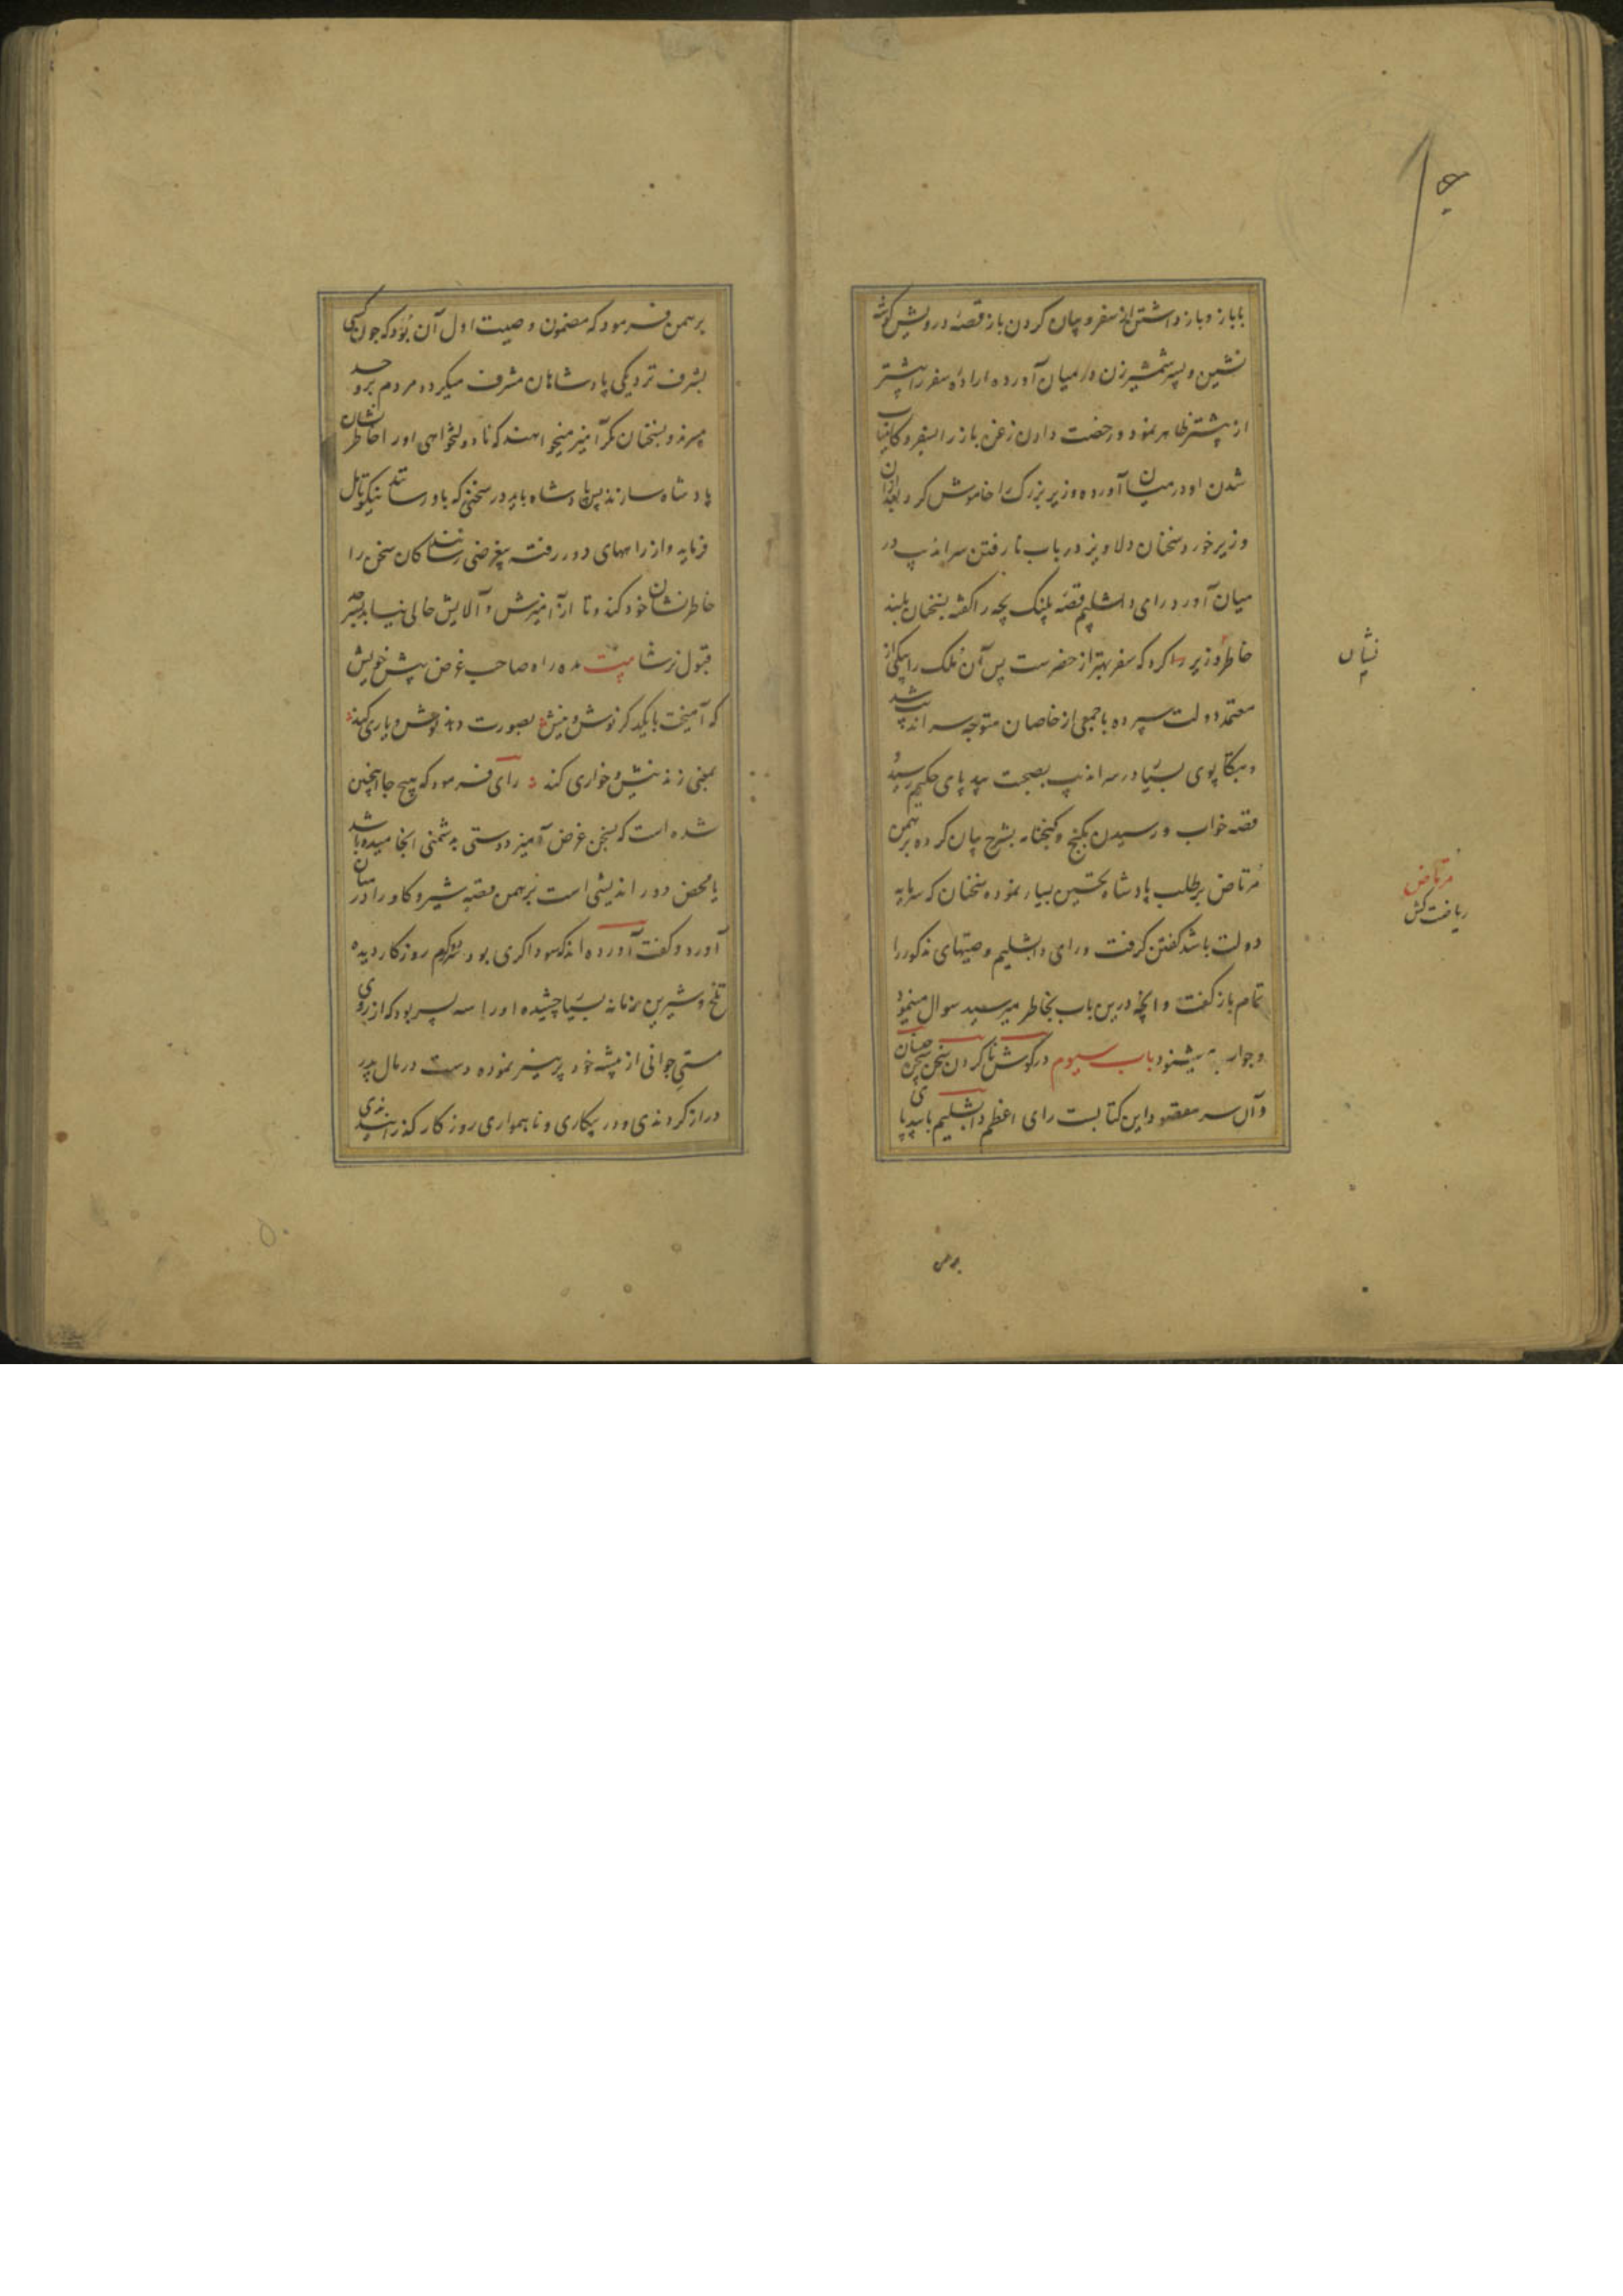 با باز و باز داشتن از سفر و بیان کردن باز قصه درویش گوشه
نشین و پسر شمشیر زن در میان آورده اراده سفر را بیشتر
از پیشتر ظاهر نمود و رخصت دادن زغن باز را بسفر و کامیاب
شدن او در میان آورده وزیر بزرگ را خاموش کرد بعد ازان
وزیر خورد سخنان دلاویز در باب نا رفتن سراندیپ در
میان آورد رای دابشلیم قصه پلنک بچه را گفته بسخنان بلند
خاطر وزیر را کرد که سفر بهتر از حضرست پس آن ملک را بیکی از
معتمد دولت سپرده با جمعی از خاصان متوجه سراندیپ شد
و بتکاپوی بسیار در سراندیپ بصحبت بیدپای حکیم رسید و
قصه خواب و رسیدن بگنج و گنجنامه بشرح بیان کرده برهمن
مرتاض بر طلب پادشاه تحسین بسیار نموده سخنان که سرمایه
دولت باشد گفتن گرفت و رای دابشلیم وصیتهای مذکور را
تمام باز گفت و آنچه درین باب بخاطر میرسید سوال مینمود
و جواب میشنود باب سیوم در گوش نا کردن سخن سخن چینان
و آن سر مقصود این کتابست رای اعظم دابشلیم با بیدپای
برهمن
نثیان
مرتاض
ریاضت کش
برهمن فرمود که مضمون وصیت اول آن بود که چون کسی
بشرف نزدیکی پادشاهان مشرف میگردد مردم برو حسد
میبرند و بسخنان مکر آمیز میخواهند که نا دولتخواهی او را خاطر نشان
پادشاه سازند پس پادشاه باید در سخنی که باو رسانند نیکو تامل
فرماید و از راههای دور رفته بیغرضی رسانندگان سخن را
خاطر نشان خود کند و تا از آمیزش و آلایش خالی نیابد بسر حد
قبول نرساند بیت مده راه صاحب غرض پیش خویش
که آمیخت با یکدگر نوش و نیش بصورت دهد نوش و یاری کند
بمعنی زند نیش و خواری کند رای فرمود که هیچ جا اینچنین
شده است که بسخن غرض آمیز دوستی بدشمنی انجامیده باشد
یا محض دور اندیشی است برهمن قصه شیر و گاو را در میان
آورد و گفت آورده اند که سوداگری بود سرد و گرم روزگار دیده
تلخ و شیرین زمانه بسیار چشیده او را سه پسر بود که از روی
مستی جوانی از پیشه خود پرهیز نموده دست در مال پدر
دراز کردندی و در بیکاری و ناهمواری روزگار گذرانیدندی